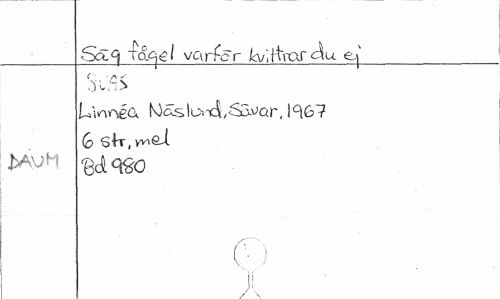 Säg fågel varför kvittrar du ej
SVAS
Linnéa Näslund, Sävar, 1967
6 str, mel
DAUM
Bd 980